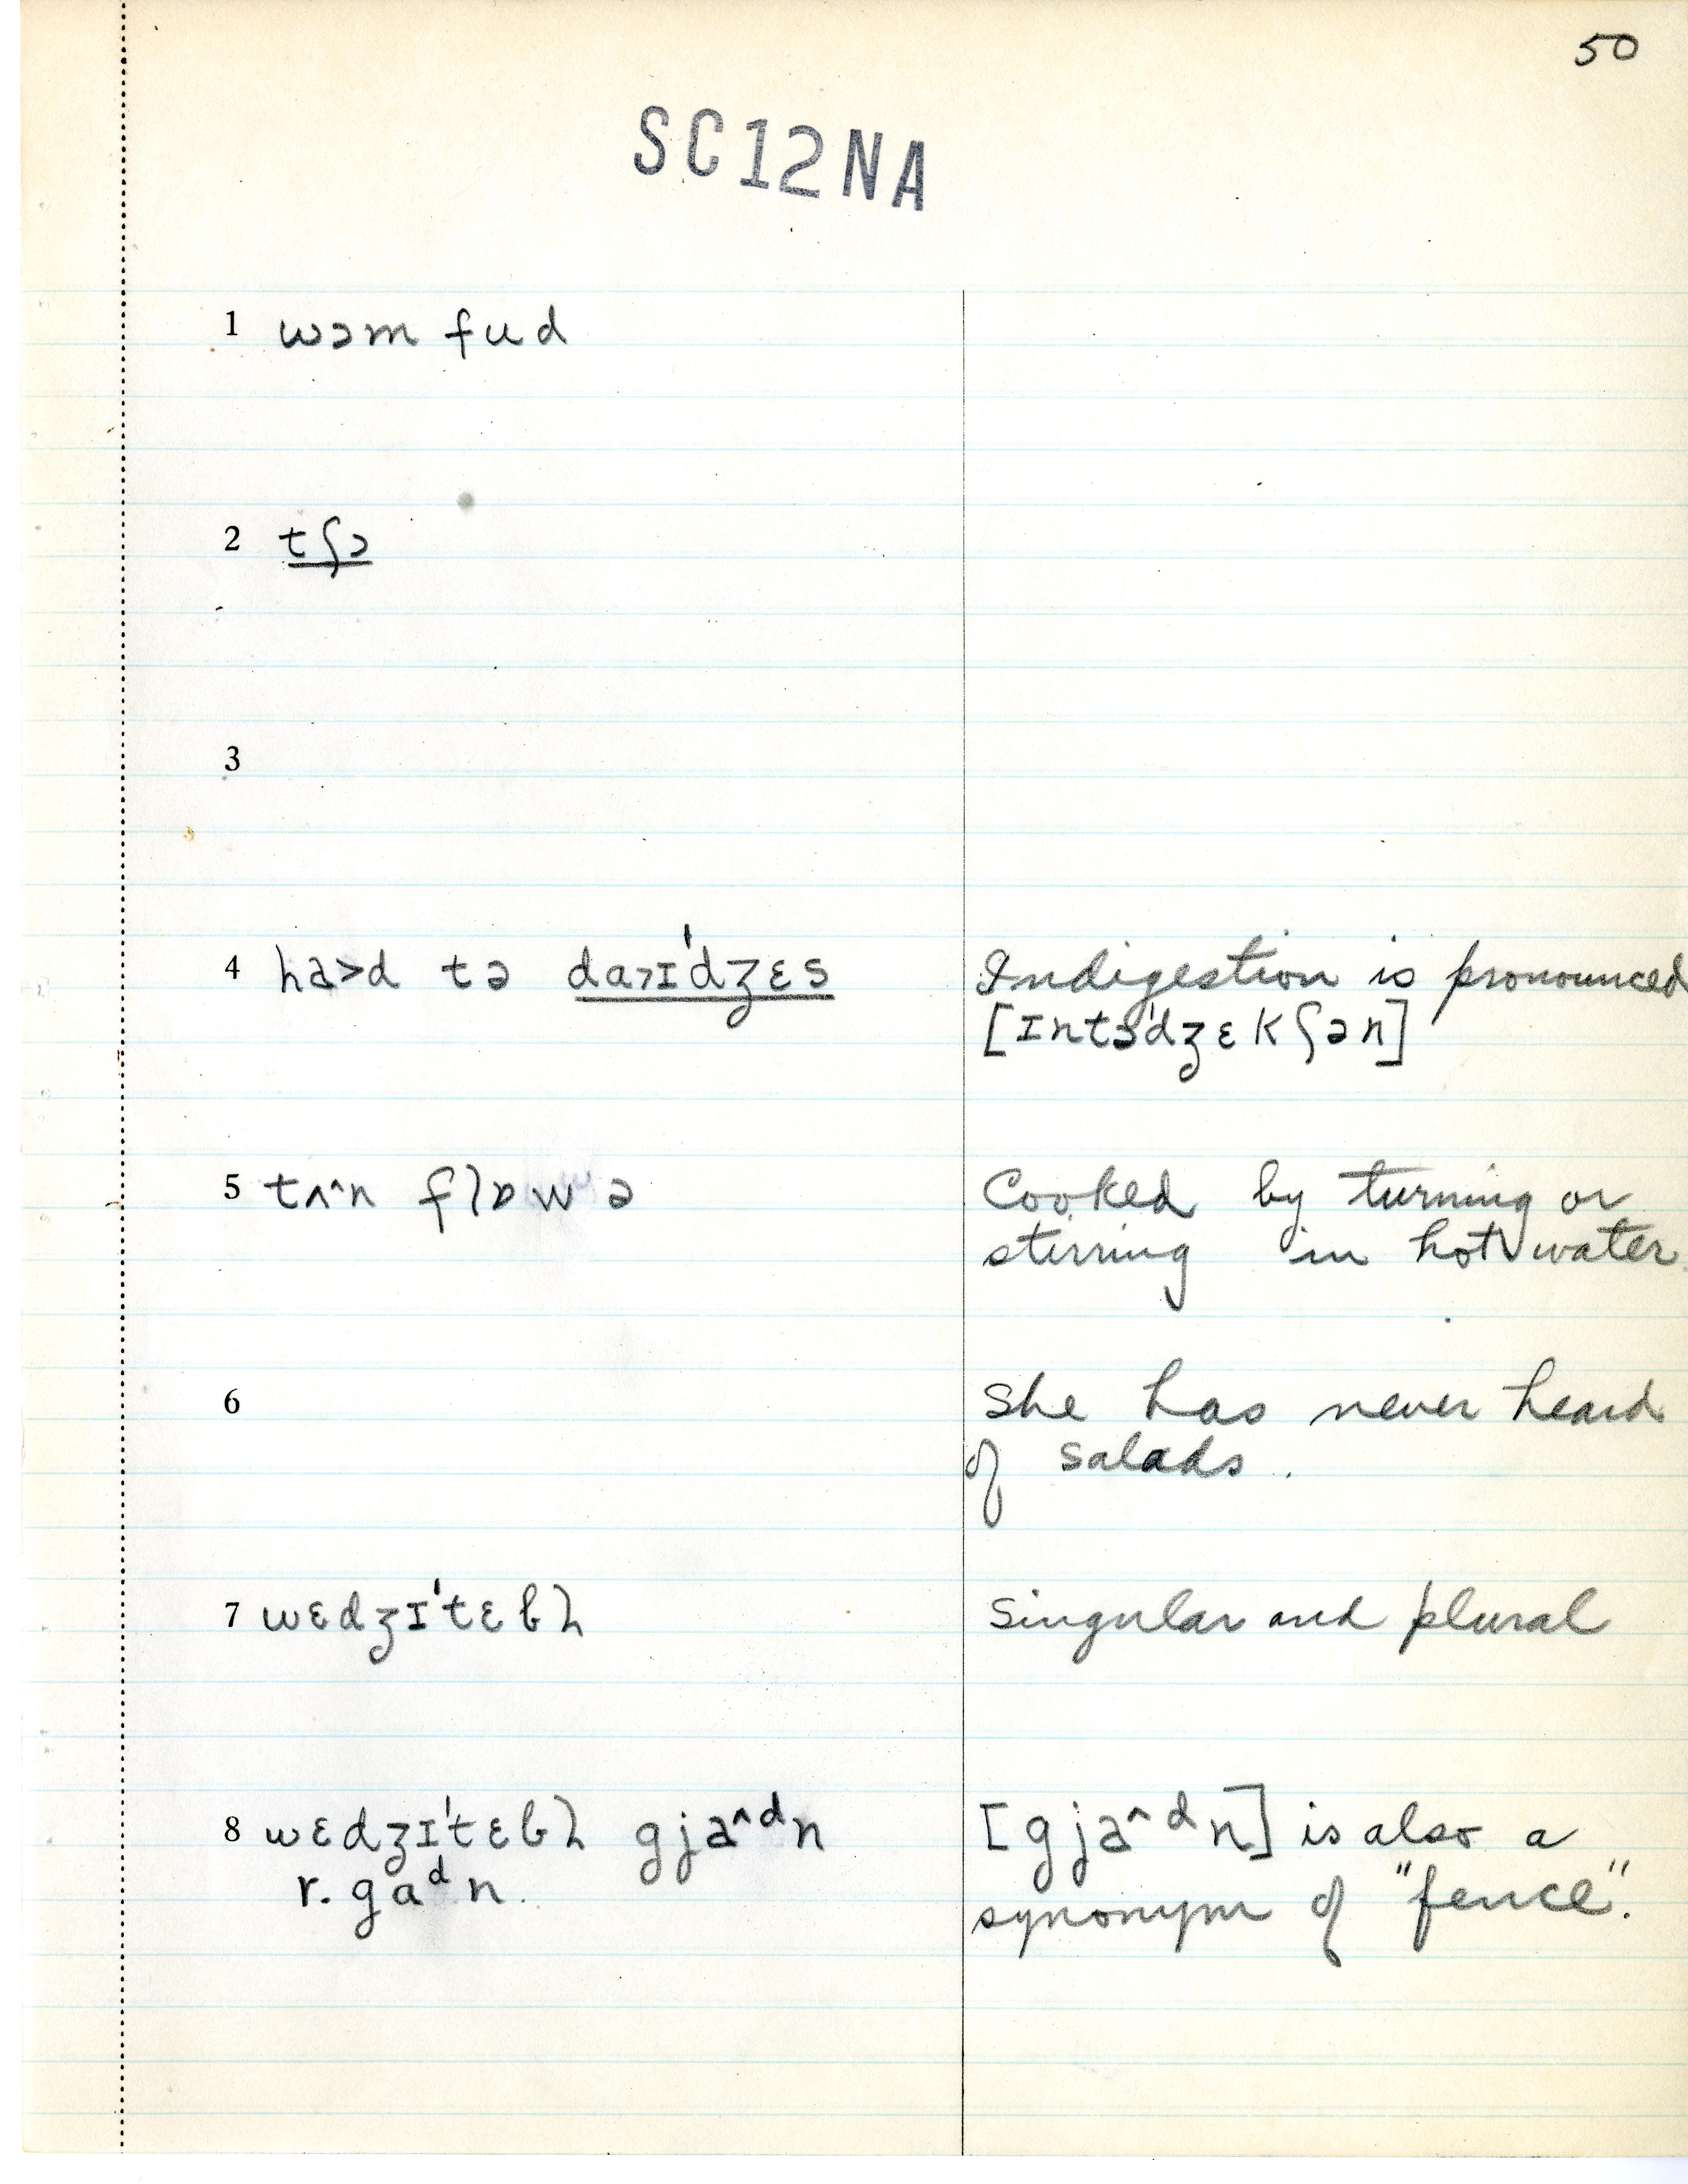 50
SC12NA
1 wɔm fud
2 tʃɔ
3
4 ha>d tə da>ɪ'dʒɛs Indigestion is pronounced
[ɪntə'dʒɛkʃən]
5 tʌ^n flɒwə Cooked by turning or
stirring in hot water
6 She has never heard
of salads.
7 wɛdʒɪ'tɛbl Singular and plural
8 wɛdʒɪ'tɛbl gja^ᵈn [gja^ᵈn] is also a
r. gaᵈn. synonym of "fence".